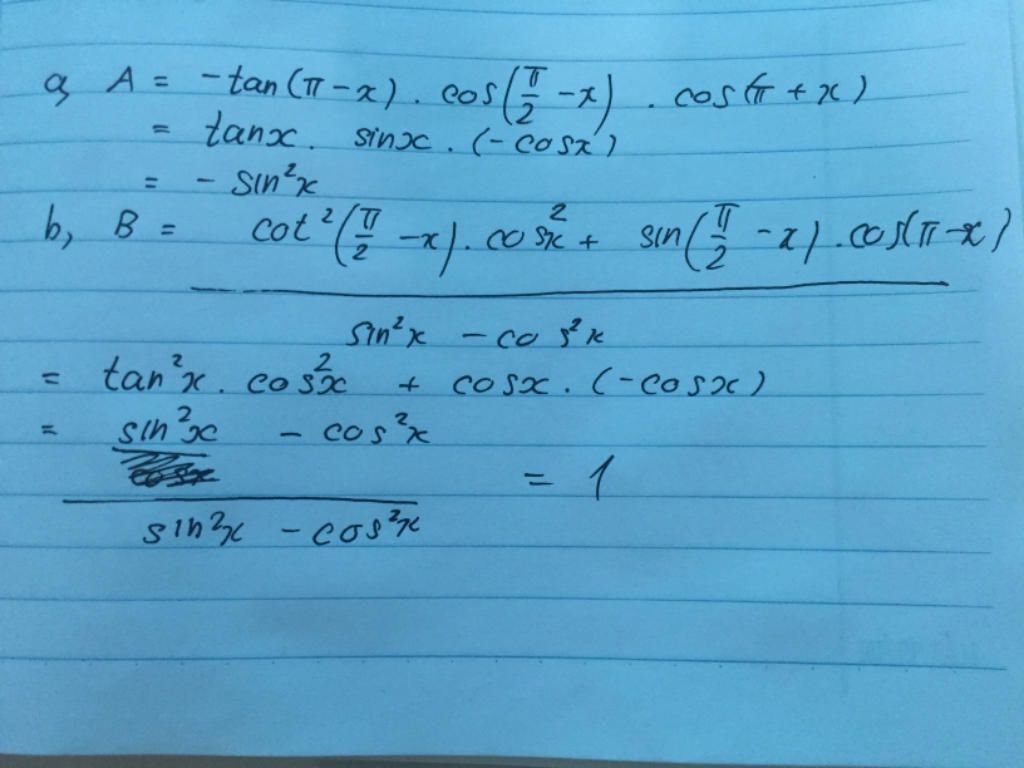 a, A = -tan(π - x) . cos(π/2 - x) . cos(π + x)
= tanx . sinx . (-cosx)
= - sin²x
b, B = cot²(π/2 - x) . cos²x + sin(π/2 - x) . cos(π - x)
sin²x - cos²x
= tan²x . cos²x + cosx . (-cosx)
= sin²x - cos²x
= 1
sin²x - cos²x